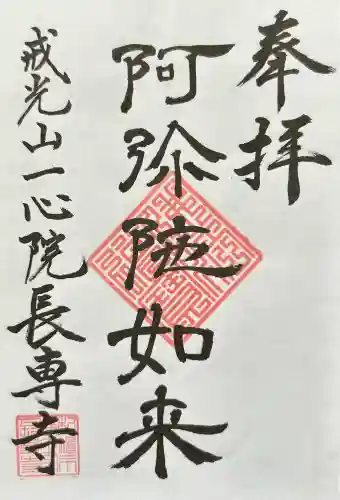 奉拝
阿弥陀如来
戒光山一心院長専寺